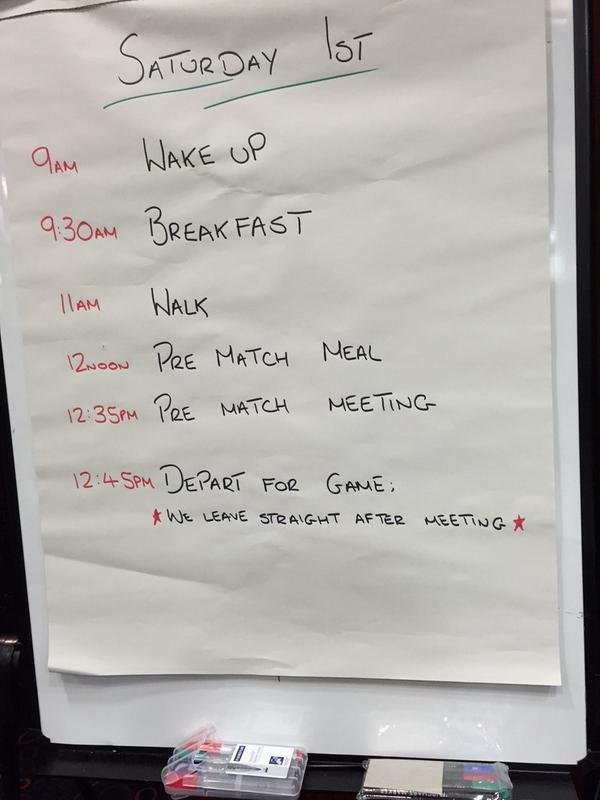 SATURDAY 1ST
9AM WAKE UP
9:30AM BREAKFAST
11AM WALK
12NOON PRE MATCH MEAL
12:35PM PRE MATCH MEETING
12:45PM DEPART FOR GAME;
★ WE LEAVE STRAIGHT AFTER MEETING ★